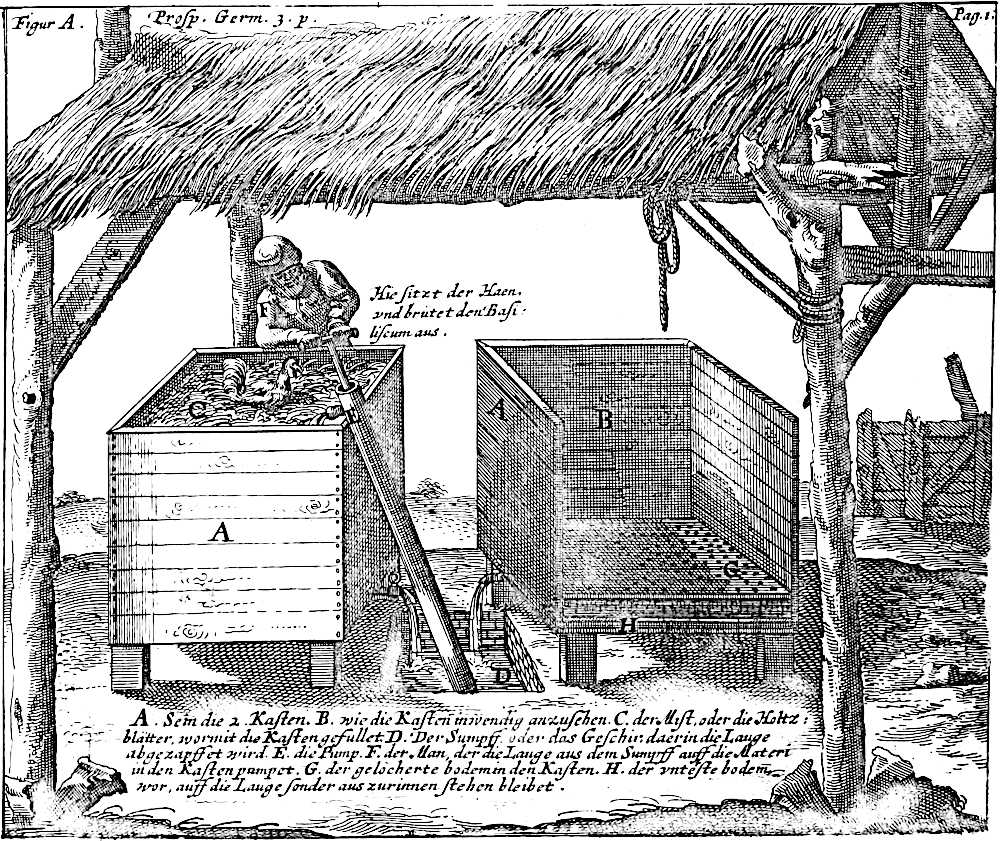 Figur A.
Prosp. Germ. 3. p.
Pag. 1.
F
Hie sitzt der Haen.
vnd brütet den Basi-
liscum aus.
C
E
A
B
A
G
H
D
A. Sein die 2. Kasten. B. wie die Kasten inwendig anzusehen. C. der Mist, oder die Holtz:
blätter, wormit die Kasten gefüllet. D. Der Sumpff, oder das Geschir, daerin die Lauge
abgezapffet wird. E. die Pump. F. der Man, der die Lauge aus dem Sumpff auff die Materi
in den Kasten pumpet. G. der gelöcherte bodem in den Kasten. H. der vnteste bodem,
wor, auff die Lauge sonder aus zurinnen stehen bleibet.